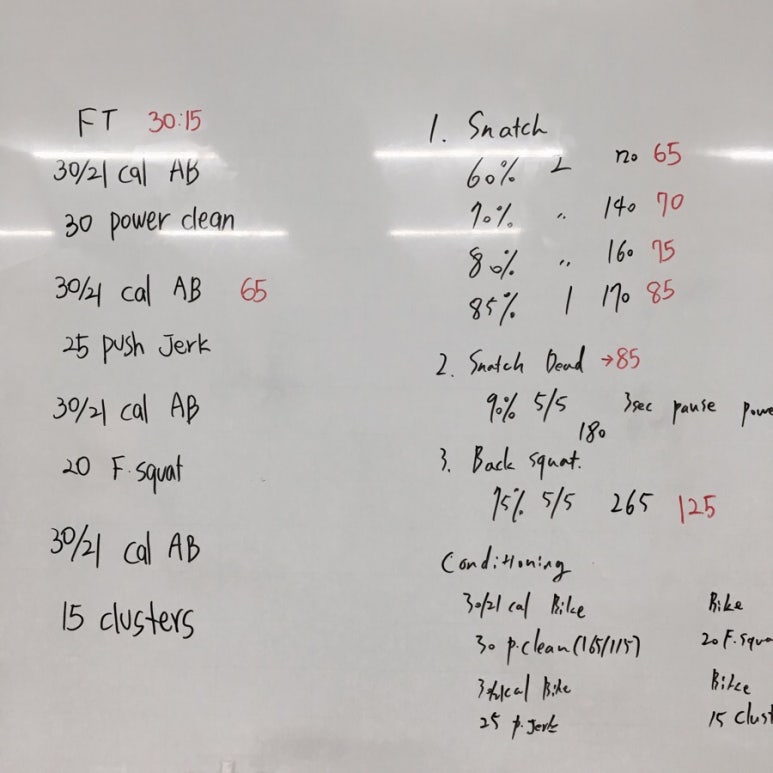 FT 30:15
30/21 cal AB
30 power clean
30/21 cal AB 65
25 push Jerk
30/21 cal AB
20 F.squat
30/21 cal AB
15 clusters
1. Snatch
60% 2 65
70% " 140 70
80% " 160 75
85% 1 170 85
2. Snatch Dead →85
90% 5/5 3sec pause
180
3. Back squat.
75% 5/5 265 125
Conditioning
30/21 cal Bike
30 p.clean(165/115)
30/21cal Bike
25 p.Jerk
Bike
20 F.squa
Bike
15 clust